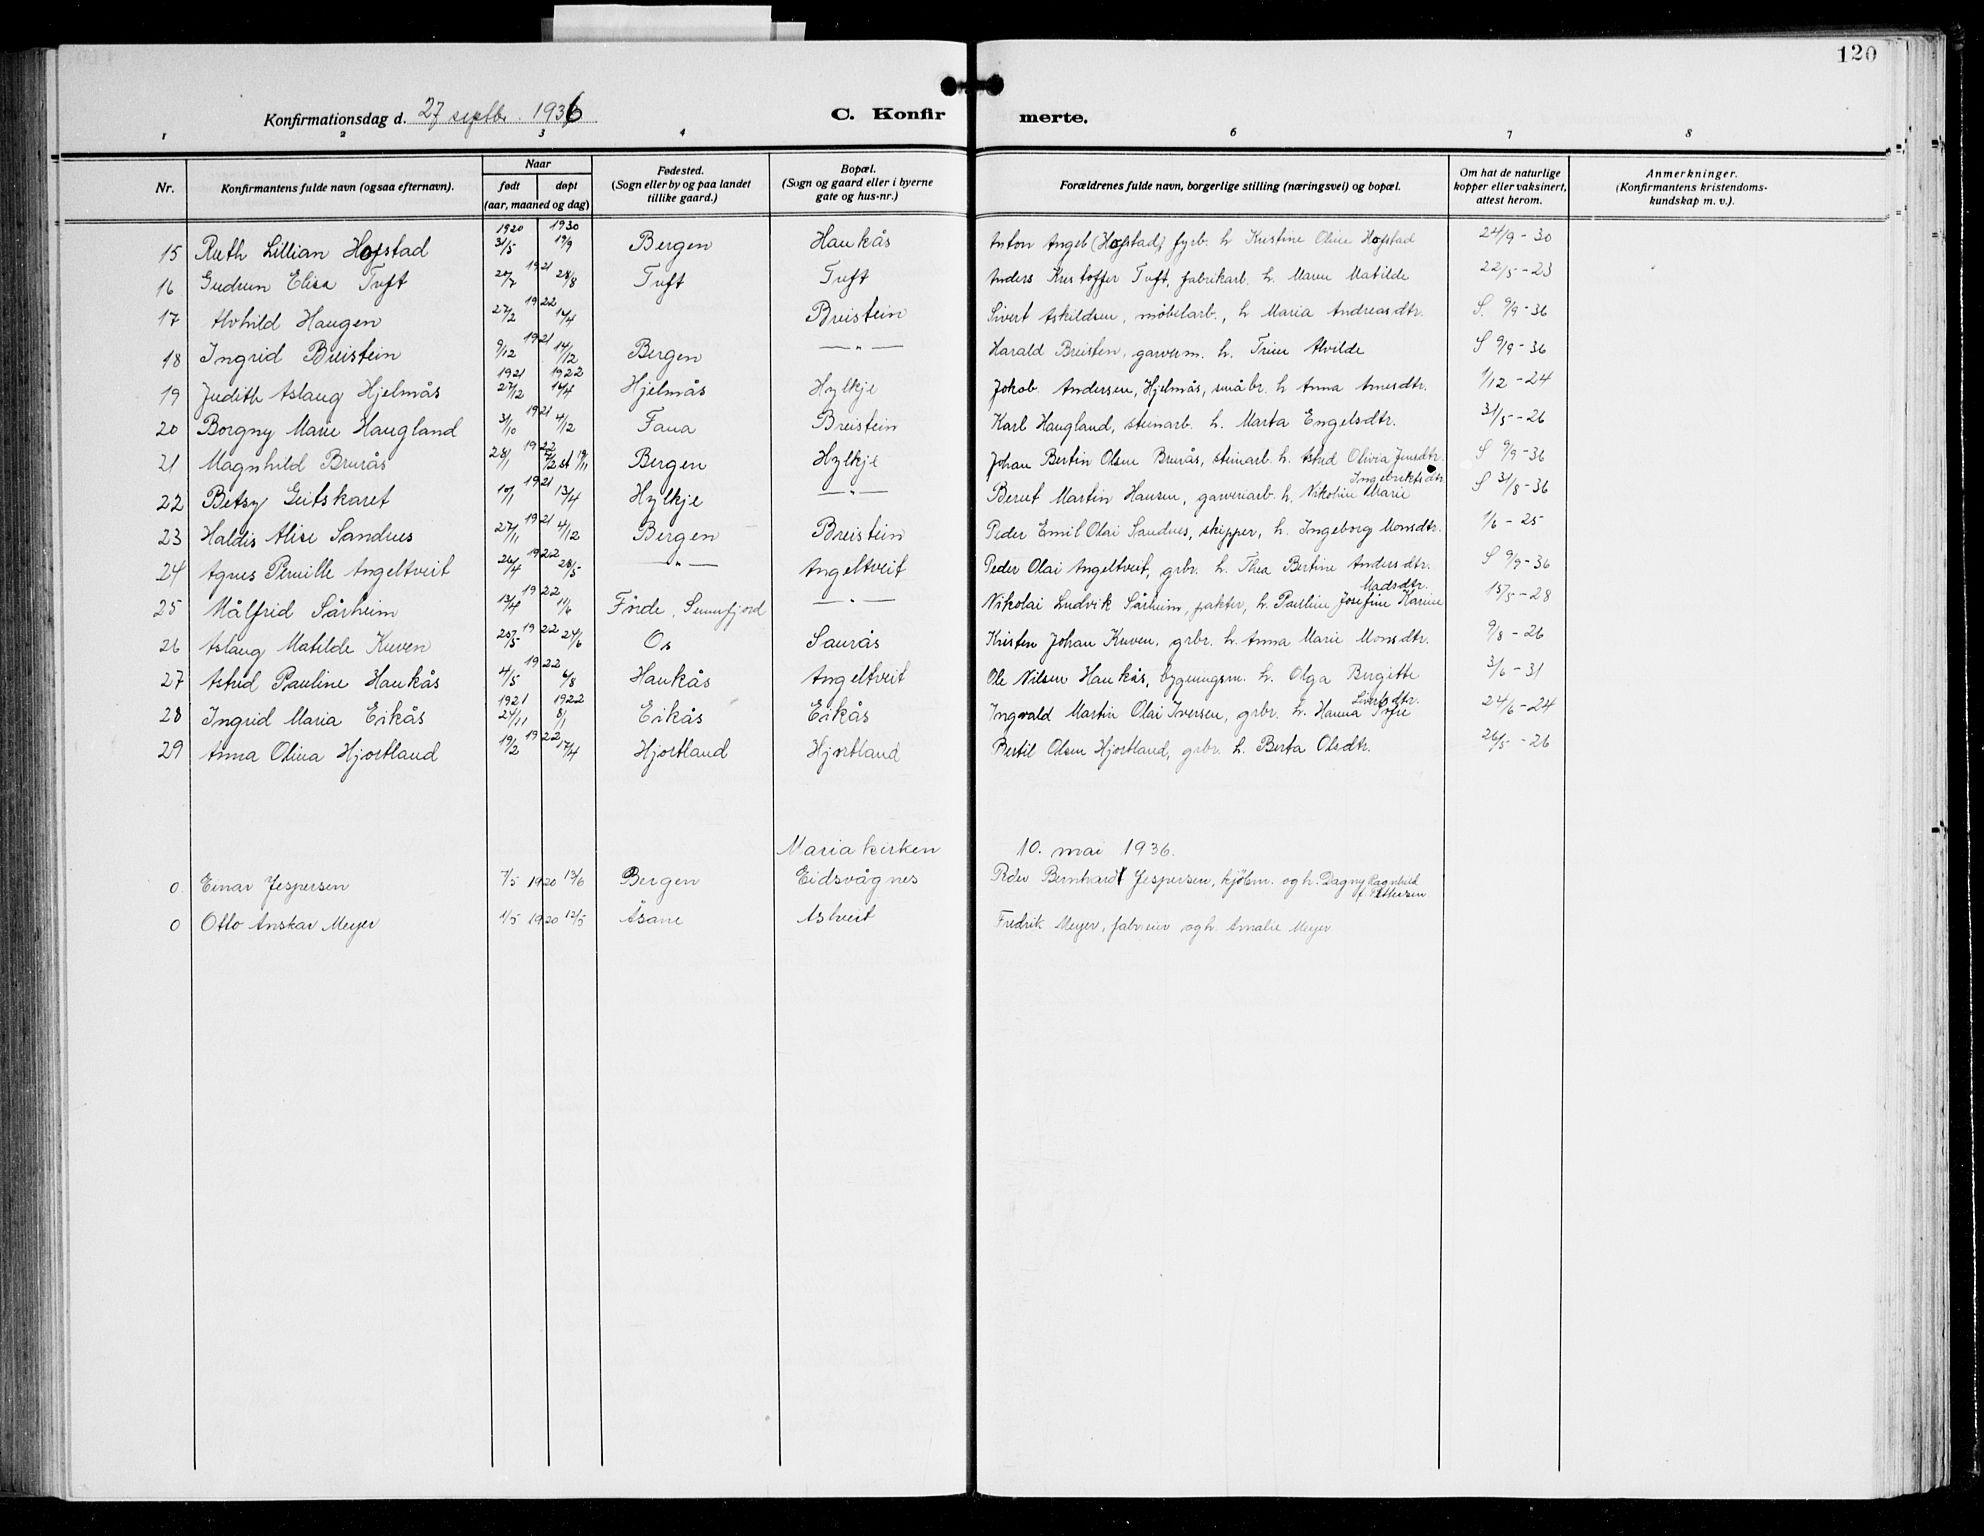 120
Konfirmationsdag d. 27 septbr. 1936 C. Konfirmerte.
1 2 3 4 6 7 8
Nr. Konfirmantens fulde navn (ogsaa efternavn). Naar født døpt (aar, maaned og dag) Fødested. (Sogn eller by og paa landet tillike gaard.) Bopæl. (Sogn og gaard eller i byerne gate og hus-nr.) Forældrenes fulde navn, borgerlige stilling (næringsvei) og bopæl. Om hat de naturlige kopper eller vaksinert, attest herom. Anmerkninger. (Konfirmantens kristendomskundskap m. v.).
15 Ruth Lillian Hofstad 1920 31/5 1930 19/9 Bergen Haukås Anton Angel (Hofstad) fyrb. h. Kristine Oline Hofstad 24/9-30
16 Gudrun Elisa Tuft 27/7 1921 28/8 Tuft Tuft Anders Kristoffer Tuft, fabrikarb. h. Maren Matilde 22/5-23
17 Alvhild Haugen 27/2 1922 17/4 Breistein Sivert Askildsen, møbelarb., h. Maria Andreasdtr. S. 9/9-36
18 Ingrid Breistein 9/12 1921 14/12 Bergen —"— Harald Breistein, garverm. h. Trine Alvilde S 9/9-36
19 Judith Aslaug Hjelmås 1921 27/12 1922 14/4 Hjelmås Hylkje Jakob Andersen, Hjelmås, småbr. h. Anna Arnesdtr. 1/12-24
20 Borgny Marie Haugland 3/10 1921 4/12 Fana Breistein Karl Haugland, steinarb. h. Marta Engelsdtr. 31/5-26
21 Magnhild Brurås 28/1 1922 st 19/11 Bergen Hylkje Johan Bertin Olsen Brurås, steinarb. h. Astrid Olivia Jensdtr. S 9/9-36
22 Betsy Geitskaret 10/1 1921 13/4 Hylkje —"— Berent Martin Hansen, garveriarb. h. Nikoline Marie Ingebriktsdtr. S 31/8-36
23 Haldis Alise Sandnes 27/11 1921 4/12 Bergen Breistein Peder Emil Olai Sandnes, skipper, h. Ingeborg Monsdtr. 1/6-25
24 Agnes Pernille Angeltveit 26/4 1922 28/5 —"— Angeltveit Peder Olai Angeltveit, grbr. h. Thea Bertine Andersdtr. S 9/9-36
25 Målfrid Sårheim 13/4 1922 11/6 Förde, Sunnfjord —"— Nikolai Ludvik Sårheim, pakter, h. Pauline Josefine Karine Madsdtr. 15/5-28
26 Aslaug Matilde Kuven 20/5 1922 24/6 Os Saurås Kristen Johan Kuven, grbr. h. Anna Marie Monsdtr. 9/8-26
27 Astrid Pauline Haukås 4/5 1922 6/8 Haukås Angeltveit Ole Nilsen Haukås, bygningsm. h. Olga Birgitte 3/6-31
28 Ingrid Maria Eikås 1921 24/11 1922 8/1 Eikås Eikås Ingvald Martin Olai Iversen, grbr. h. Hanna Sivertsdtr. 24/6-24
29 Anna Olina Hjortland 19/2 1922 17/4 Hjortland Hjortland Bertil Olsen Hjortland, grbr. h. Berta Olsdtr. 26/5-26
Mariakirken 10. mai 1936.
0 Einar Jespersen 7/5 1920 13/6 Bergen Eidsvågnes Peder Bernhard Jespersen, kjölm. og h. Dagny Ragnhild f. Pettersen
0 Otto Anskar Meyer 1/5 1920 12/5 Åsane Astveit Fredrik Meyer, fabr.eier og h. Amalie Meyer